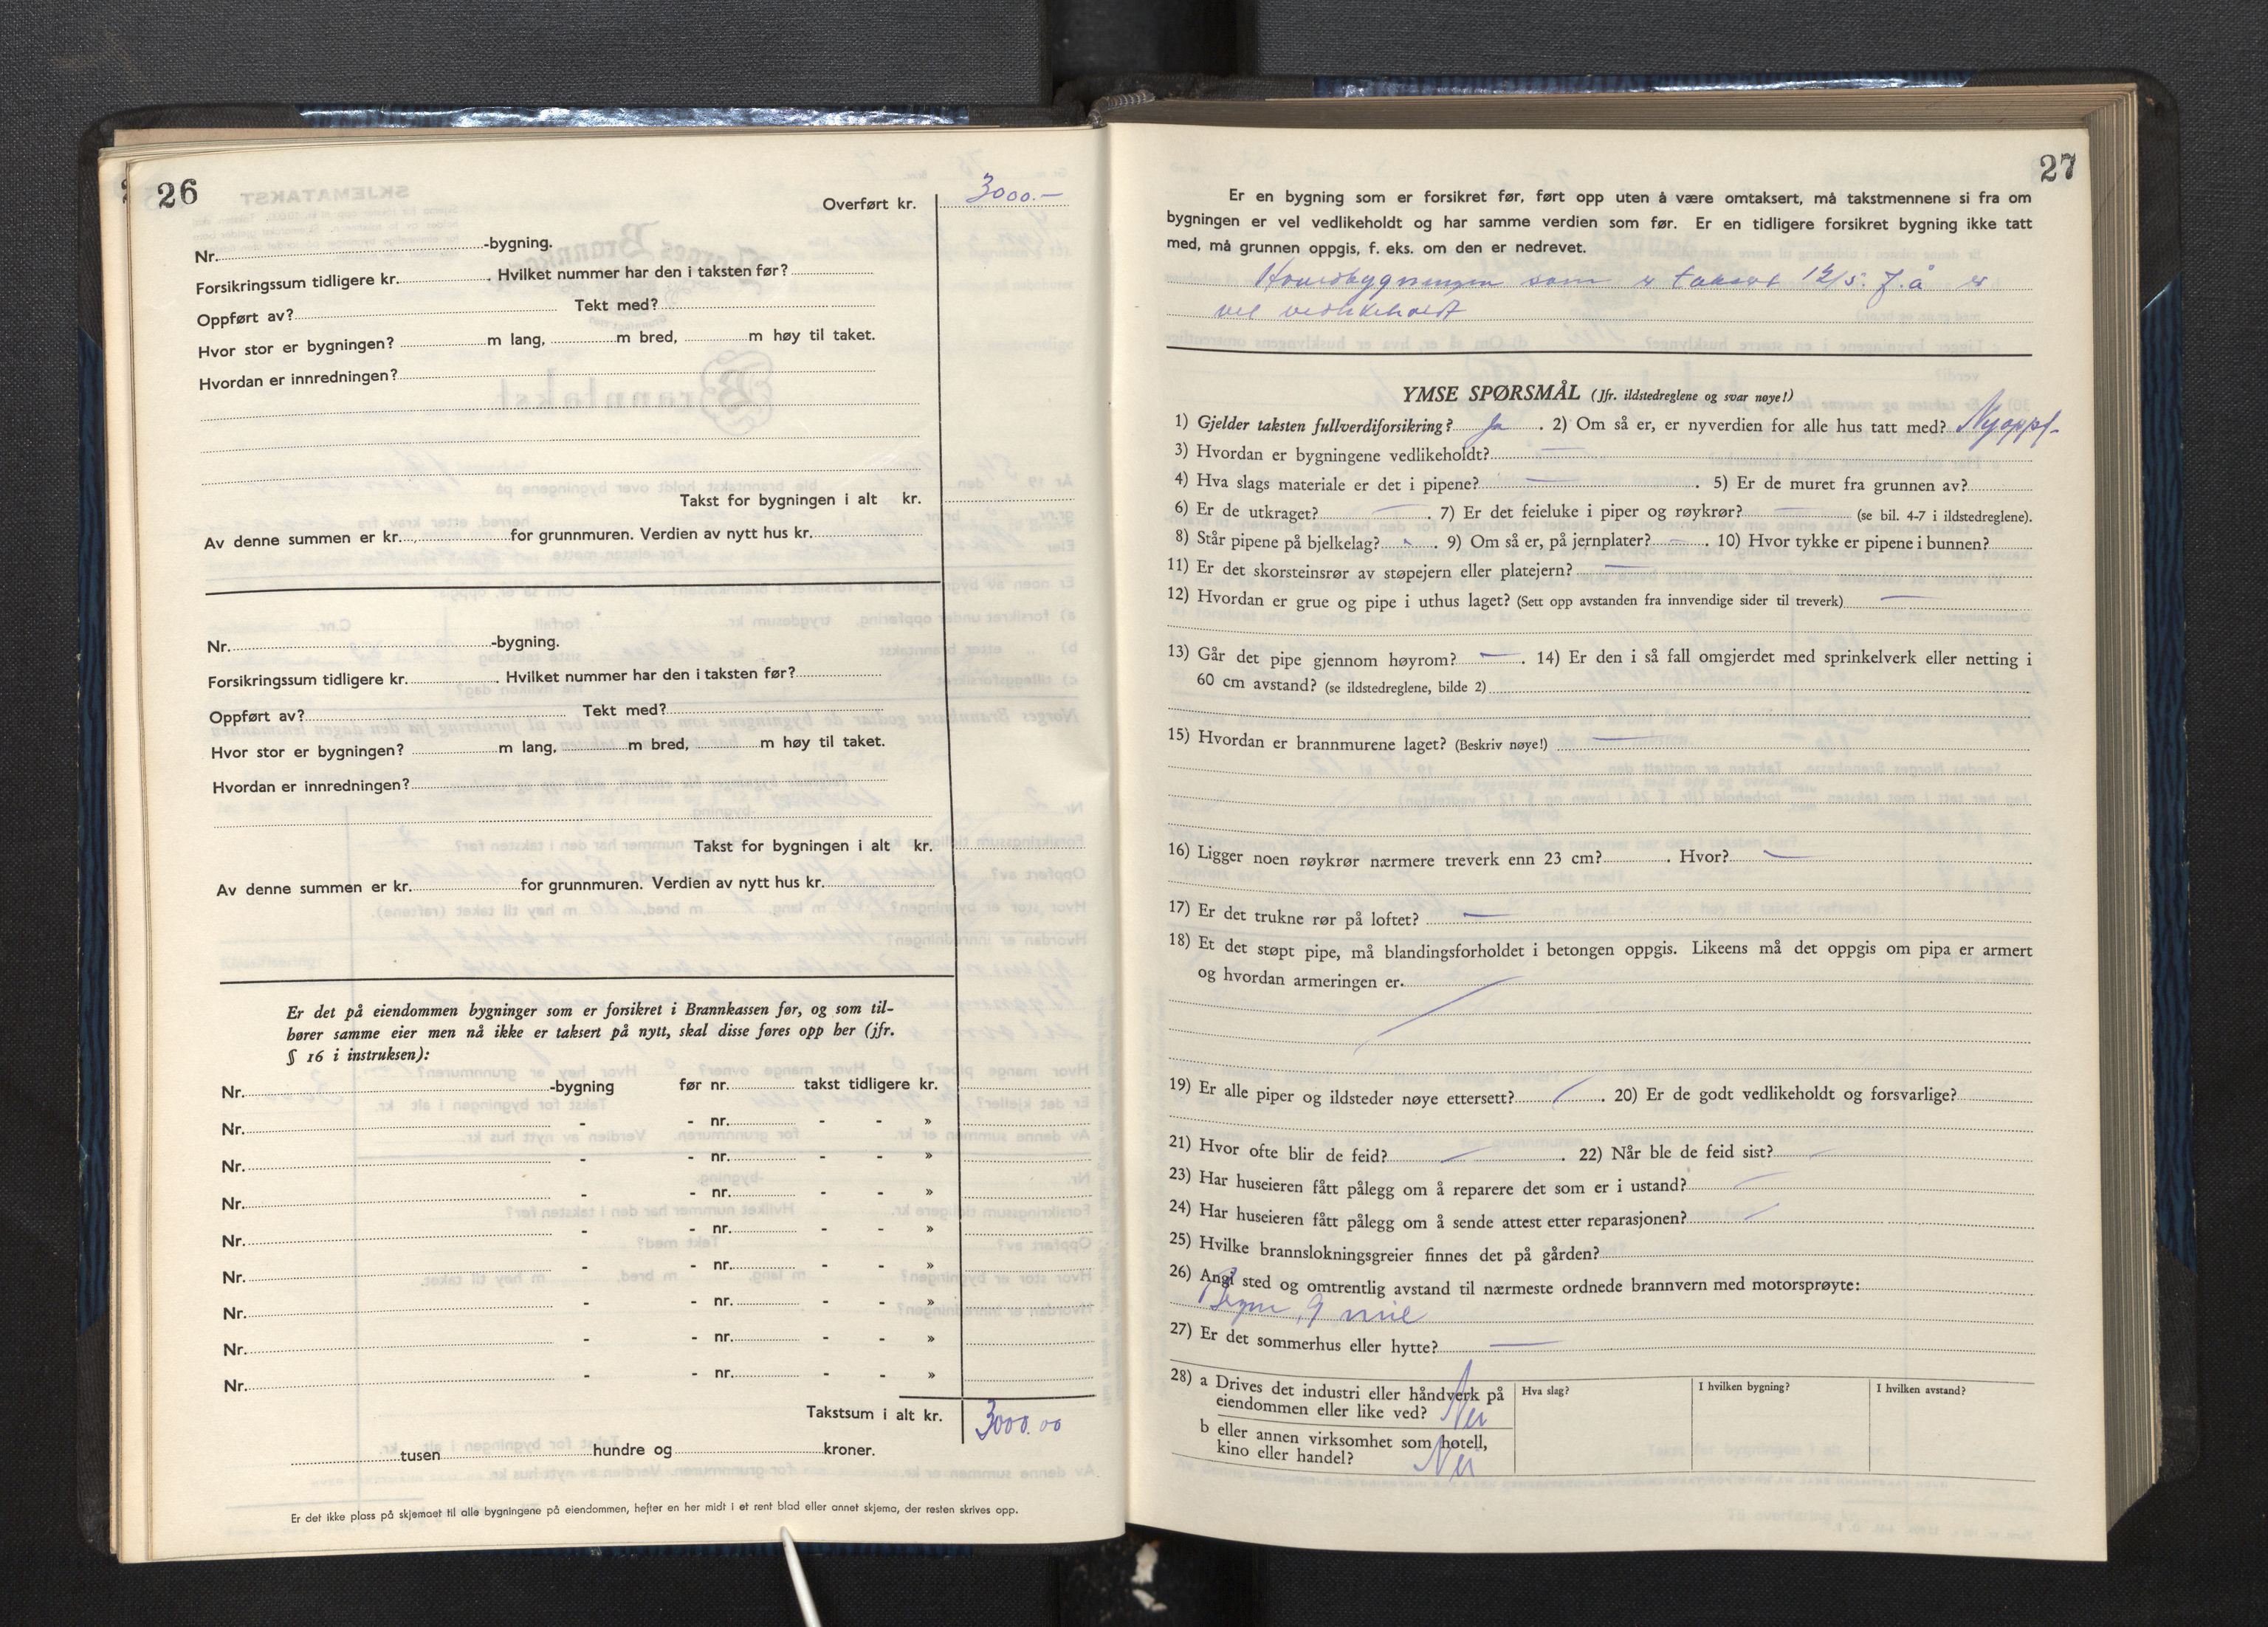 26
Overført kr. 3000.-
Nr. -bygning.
Forsikringssum tidligere kr. . Hvilket nummer har den i taksten før?
Oppført av? Tekt med?
Hvor stor er bygningen? m lang, m bred, m høy til taket.
Hvordan er innredningen?
Takst for bygningen i alt kr.
Av denne summen er kr. for grunnmuren. Verdien av nytt hus kr.
Nr. -bygning.
Forsikringssum tidligere kr. . Hvilket nummer har den i taksten før?
Oppført av? Tekt med?
Hvor stor er bygningen? m lang, m bred, m høy til taket.
Hvordan er innredningen?
Takst for bygningen i alt kr.
Av denne summen er kr. for grunnmuren. Verdien av nytt hus kr.
Er det på eiendommen bygninger som er forsikret i Brannkassen før, og som til-
hører samme eier men nå ikke er taksert på nytt, skal disse føres opp her (jfr.
§ 16 i instruksen):
Nr. -bygning før nr. takst tidligere kr.
Nr. - - nr. - - »
Nr. - - nr. - - »
Nr. - - nr. - - »
Nr. - - nr. - - »
Nr. - - nr. - - »
Nr. - - nr. - - »
Nr. - - nr. - - »
Nr. - - nr. - - »
Takstsum i alt kr. 3000.00
tusen hundre og kroner.
Er det ikke plass på skjemaet til alle bygningene på eiendommen, hefter en her midt i et rent blad eller annet skjema, der resten skrives opp.
27
Er en bygning som er forsikret før, ført opp uten å være omtaksert, må takstmennene si fra om
bygningen er vel vedlikeholdt og har samme verdien som før. Er en tidligere forsikret bygning ikke tatt
med, må grunnen oppgis, f. eks. om den er nedrevet.
Hovedbygningen som er taksert 12/5. f.å er
vel vedlikeholdt
YMSE SPØRSMÅL (Jfr. ildstedreglene og svar nøye!)
1) Gjelder taksten fullverdiforsikring? Ja . 2) Om så er, er nyverdien for alle hus tatt med? Nyoppf.
3) Hvordan er bygningene vedlikeholdt? —
4) Hva slags materiale er det i pipene? — . 5) Er de muret fra grunnen av?
6) Er de utkraget? — . 7) Er det feieluke i piper og røykrør? — (se bil. 4-7 i ildstedreglene).
8) Står pipene på bjelkelag? - . 9) Om så er, på jernplater? — . 10) Hvor tykke er pipene i bunnen?
11) Er det skorsteinsrør av støpejern eller platejern? —
12) Hvordan er grue og pipe i uthus laget? (Sett opp avstanden fra innvendige sider til treverk) —
13) Går det pipe gjennom høyrom? — . 14) Er den i så fall omgjerdet med sprinkelverk eller netting i
60 cm avstand? (se ildstedreglene, bilde 2)
15) Hvordan er brannmurene laget? (Beskriv nøye!) —
16) Ligger noen røykrør nærmere treverk enn 23 cm? . Hvor? —
17) Er det trukne rør på loftet? —
18) Et det støpt pipe, må blandingsforholdet i betongen oppgis. Likeens må det oppgis om pipa er armert
og hvordan armeringen er.
19) Er alle piper og ildsteder nøye ettersett? . 20) Er de godt vedlikeholdt og forsvarlige?
21) Hvor ofte blir de feid? . 22) Når ble de feid sist?
23) Har huseieren fått pålegg om å reparere det som er i ustand?
24) Har huseieren fått pålegg om å sende attest etter reparasjonen?
25) Hvilke brannslokningsgreier finnes det på gården?
26) Angi sted og omtrentlig avstand til nærmeste ordnede brannvern med motorsprøyte:
9 mil
27) Er det sommerhus eller hytte? —
28) a Drives det industri eller håndverk på
eiendommen eller like ved? Nei
Hva slag?
I hvilken bygning?
I hvilken avstand?
b eller annen virksomhet som hotell,
kino eller handel? Nei